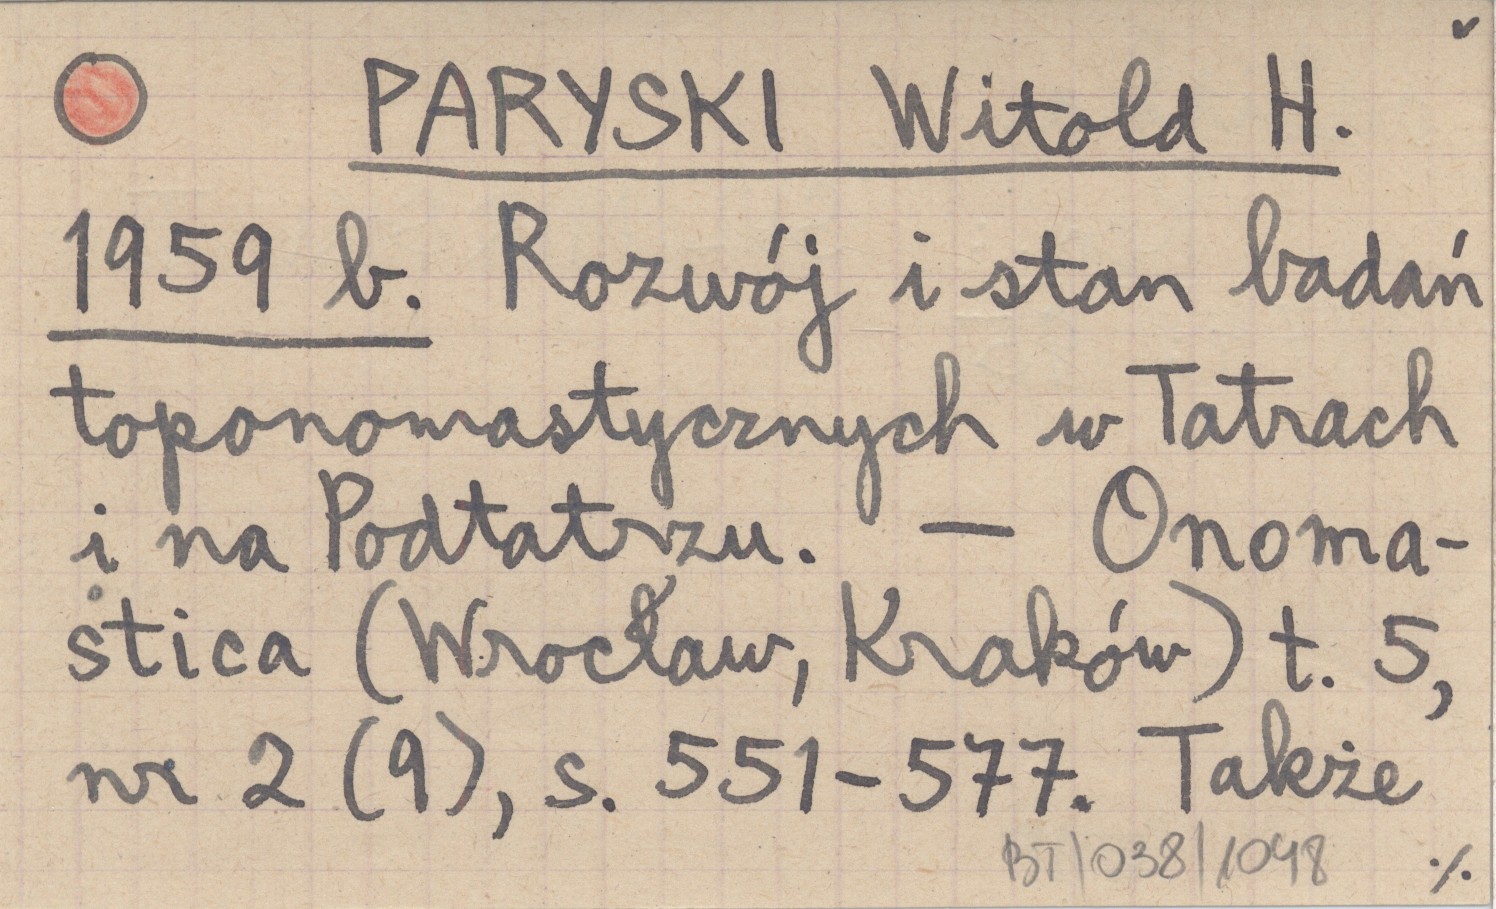 PARYSKI Witold H.
1959 b. Rozwój i stan badań
toponomastycznych w Tatrach
i na Podtatrzu. — Onoma-
stica (Wrocław, Kraków) t. 5,
nr 2 (9), s. 551-577. Także
BT/038/1048 ./.